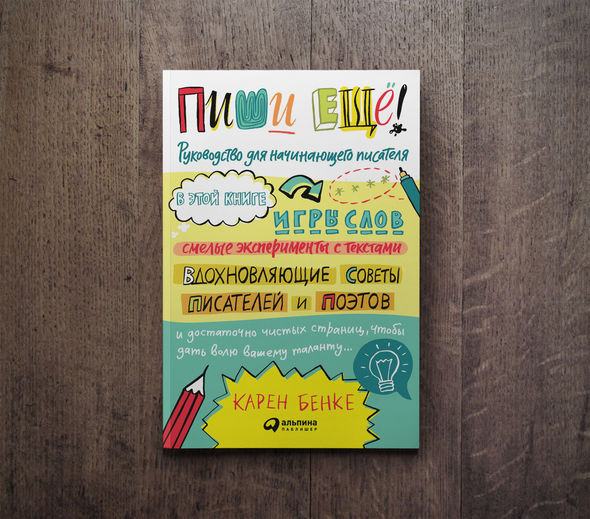 Пиши ЕЩЁ!
Руководство для начинающего писателя
В ЭТОЙ КНИГЕ
ИГРЫ СЛОВ
смелые эксперименты с текстами
ВДОХНОВЛЯЮЩИЕ СОВЕТЫ
ПИСАТЕЛЕЙ И ПОЭТОВ
и достаточно чистых страниц, чтобы
дать волю вашему таланту...
КАРЕН БЕНКЕ
альпина
ПАБЛИШЕР